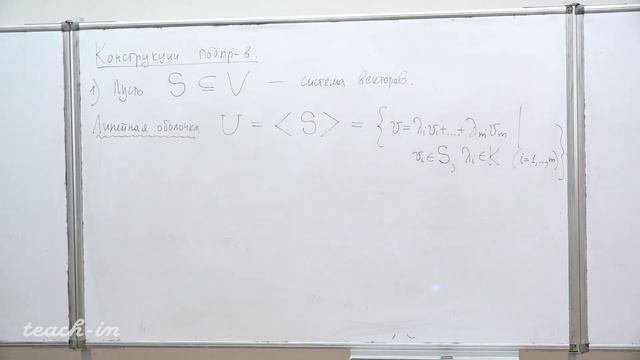 Конструкции подпр-в.
1) Пусть S ⊆ V — система векторов.
Линейная оболочка U = <S> = { v = λ₁v₁+...+λₘvₘ |
vᵢ ∈ S, λᵢ ∈ K (i=1,...,m) }
teach-in